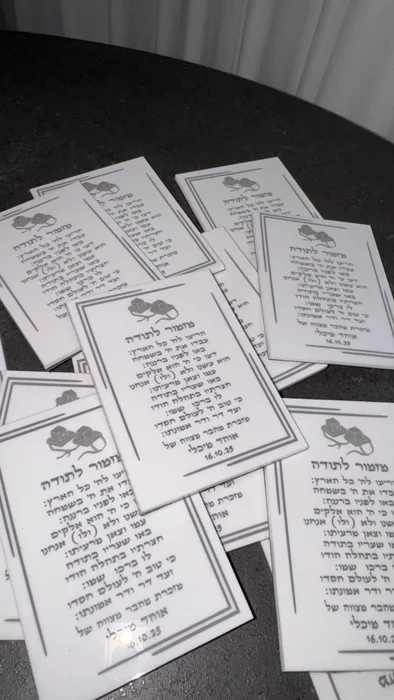 מזמור לתודה
הריעו לה' כל הארץ:
עבדו את ה' בשמחה
באו לפניו ברננה:
דעו כי ה' הוא אלקים
הוא עשנו ולא (ולו) אנחנו
עמו וצאן מרעיתו:
באו שעריו בתודה
חצרתיו בתהלה הודו
לו ברכו שמו:
כי טוב ה' לעולם חסדו
ועד דר ודר אמונתו:
מזכרת מהבר מצווה של
אוהד מיכלי
16.10.25